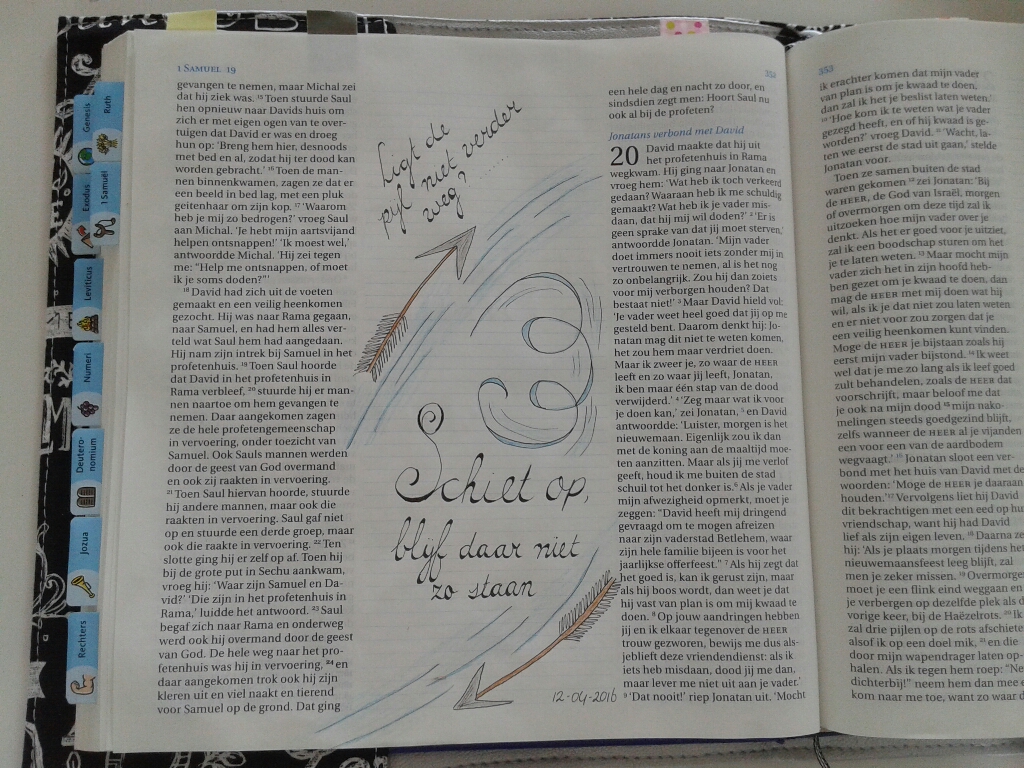 Genesis
Ruth
Exodus
1 Samuël
Leviticus
Numeri
Deutero-
nomium
Jozua
Rechters
1 SAMUEL 19
gevangen te nemen, maar Michal zei
dat hij ziek was. 15 Toen stuurde Saul
hen opnieuw naar Davids huis om
zich er met eigen ogen van te over-
tuigen dat David er was en droeg
hun op: ‘Breng hem hier, desnoods
met bed en al, zodat hij ter dood kan
worden gebracht.’ 16 Toen de man-
nen binnenkwamen, zagen ze dat er
een beeld in bed lag, met een pluk
geitenhaar om zijn kop. 17 ‘Waarom
heb je mij zo bedrogen?’ vroeg Saul
aan Michal. ‘Je hebt mijn aartsvijand
helpen ontsnappen!’ ‘Ik moest wel,’
antwoordde Michal. ‘Hij zei tegen
me: “Help me ontsnappen, of moet
ik je soms doden?”’
18 David had zich uit de voeten
gemaakt en een veilig heenkomen
gezocht. Hij was naar Rama gegaan,
naar Samuel, en had hem alles ver-
teld wat Saul hem had aangedaan.
Hij nam zijn intrek bij Samuel in het
profetenhuis. 19 Toen Saul hoorde
dat David in het profetenhuis in
Rama verbleef, 20 stuurde hij er man-
nen naartoe om hem gevangen te
nemen. Daar aangekomen zagen
ze de hele profetengemeenschap
in vervoering, onder toezicht van
Samuel. Ook Sauls mannen werden
door de geest van God overmand
en ook zij raakten in vervoering.
21 Toen Saul hiervan hoorde, stuurde
hij andere mannen, maar ook die
raakten in vervoering. Saul gaf niet
op en stuurde een derde groep, maar
ook die raakte in vervoering. 22 Ten
slotte ging hij er zelf op af. Toen hij
bij de grote put in Sechu aankwam,
vroeg hij: ‘Waar zijn Samuel en Da-
vid?’ ‘Die zijn in het profetenhuis in
Rama,’ luidde het antwoord. 23 Saul
begaf zich naar Rama en onderweg
werd ook hij overmand door de geest
van God. De hele weg naar het pro-
fetenhuis was hij in vervoering, 24 en
daar aangekomen trok ook hij zijn
kleren uit en viel naakt en tierend
voor Samuel op de grond. Dat ging
Ligt de
pijl niet verder
weg? ......
Schiet op,
blijf daar niet
zo staan
12-04-2016
een hele dag en nacht zo door, en
sindsdien zegt men: Hoort Saul nu
ook al bij de profeten?
Jonatans verbond met David
20 David maakte dat hij uit
het profetenhuis in Rama
wegkwam. Hij ging naar Jonatan en
vroeg hem: ‘Wat heb ik toch verkeerd
gedaan? Waaraan heb ik me schuldig
gemaakt? Wat heb ik je vader mis-
daan, dat hij mij wil doden?’ 2 ‘Er is
geen sprake van dat jij moet sterven,’
antwoordde Jonatan. ‘Mijn vader
doet immers nooit iets zonder mij in
vertrouwen te nemen, al is het nog
zo onbelangrijk. Zou hij dan zoiets
voor mij verborgen houden? Dat
bestaat niet!’ 3 Maar David hield vol:
‘Je vader weet heel goed dat jij op me
gesteld bent. Daarom denkt hij: Jo-
natan mag dit niet te weten komen,
het zou hem maar verdriet doen.
Maar ik zweer je, zo waar de HEER
leeft en zo waar jij leeft, Jonatan,
ik ben maar één stap van de dood
verwijderd.’ 4 ‘Zeg maar wat ik voor
je doen kan,’ zei Jonatan, 5 en David
antwoordde: ‘Luister, morgen is het
nieuwemaan. Eigenlijk zou ik dan
met de koning aan de maaltijd moe-
ten aanzitten. Maar als jij me verlof
geeft, houd ik me buiten de stad
schuil tot het donker is. 6 Als je vader
mijn afwezigheid opmerkt, moet je
zeggen: “David heeft mij dringend
gevraagd om te mogen afreizen
naar zijn vaderstad Betlehem, waar
zijn hele familie bijeen is voor het
jaarlijkse offerfeest.” 7 Als hij zegt dat
het goed is, kan ik gerust zijn, maar
als hij boos wordt, dan weet je dat
hij vast van plan is om mij kwaad te
doen. 8 Op jouw aandringen hebben
jij en ik elkaar tegenover de HEER
trouw gezworen, bewijs me dus als-
jeblieft deze vriendendienst: als ik
iets heb misdaan, dood jij me dan,
maar lever me niet uit aan je vader.’
9 ‘Dat nooit!’ riep Jonatan uit. ‘Mocht
353
ik erachter komen dat mijn vader
van plan is om je kwaad te doen,
dan zal ik het je beslist laten weten.’
10 ‘Hoe kom ik te weten wat je vader
gezegd heeft, en of hij kwaad is ge-
worden?’ vroeg David. 11 ‘Wacht, la-
ten we eerst de stad uit gaan,’ stelde
Jonatan voor.
Toen ze samen buiten de stad
waren gekomen 12 zei Jonatan: ‘Bij
de HEER, de God van Israël, morgen
of overmorgen om deze tijd zal ik
uitzoeken hoe mijn vader over je
denkt. Als het er goed voor je uitziet,
zal ik een boodschap sturen om het
je te laten weten. 13 Maar mocht mijn
vader zich het in zijn hoofd heb-
ben gezet om je kwaad te doen, dan
mag de HEER met mij doen wat hij
wil, als ik je dat niet zou laten weten
en er niet voor zou zorgen dat je
een veilig heenkomen kunt vinden.
Moge de HEER je bijstaan zoals hij
eerst mijn vader bijstond. 14 Ik weet
wel dat je me zo lang als ik leef goed
zult behandelen, zoals de HEER dat
voorschrijft, maar beloof me dat
je ook na mijn dood 15 mijn nako-
melingen steeds goedgezind blijft,
zelfs wanneer de HEER al je vijanden
een voor een van de aardbodem
wegvaagt.’ 16 Jonatan sloot een ver-
bond met het huis van David met de
woorden: ‘Moge de HEER je daaraan
houden.’ 17 Vervolgens liet hij David
dit bekrachtigen met een eed op hu
vriendschap, want hij had David
lief als zijn eigen leven. 18 Daarna ze
hij: ‘Als je plaats morgen tijdens he
nieuwemaansfeest leeg blijft, zal
men je zeker missen. 19 Overmorge
moet je een flink eind weggaan en
je verbergen op dezelfde plek als d
vorige keer, bij de Haëzelrots. 20 Ik
zal drie pijlen op de rots afschiete
alsof ik op een doel mik, 21 en die
door mijn wapendrager laten op-
halen. Als ik tegen hem roep: “Ne
dichterbij!” neem hem dan mee e
kom naar me toe, want zo waar d